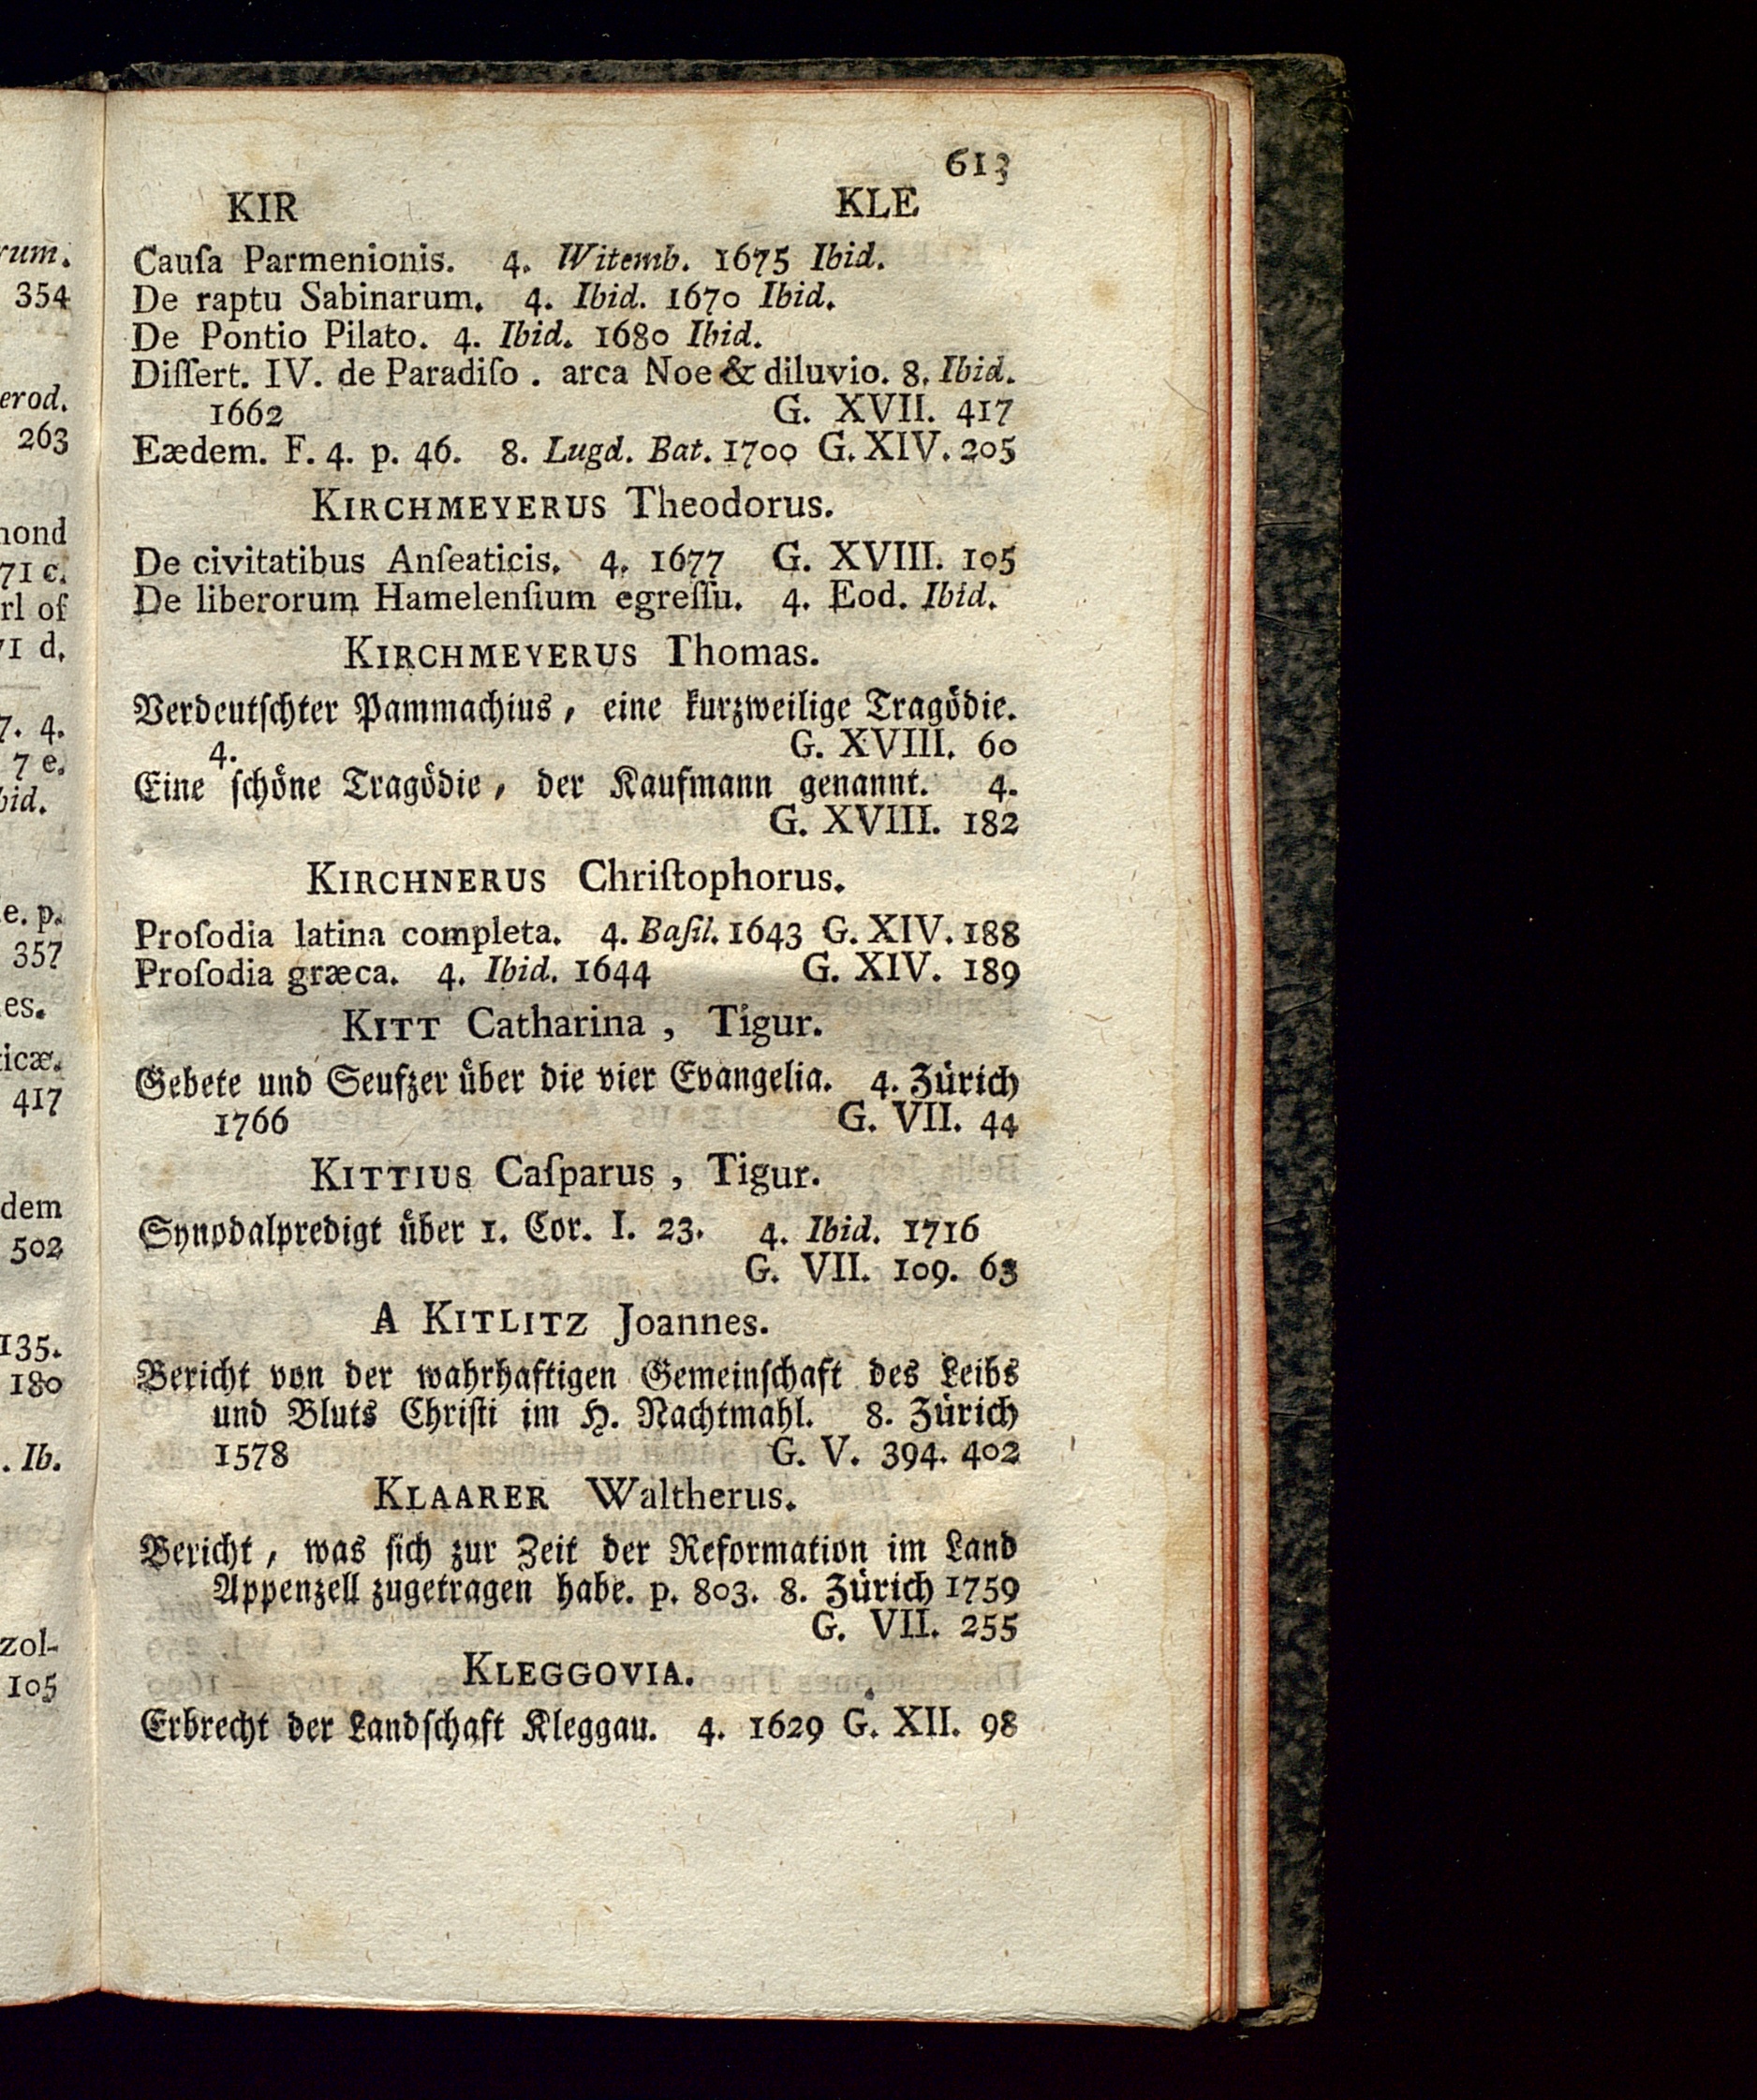 613
KIR KLE
Cauſa Parmenionis. 4. Witemb. 1675 Ibid.
De raptu Sabinarum. 4. Ibid. 1670 Ibid.
De Pontio Pilato. 4. Ibid. 1680 Ibid.
Diſſert. IV. de Paradiſo. arca Noe & diluvio. 8. Ibid.
1662 G. XVII. 417
Eædem. F. 4. p. 46. 8. Lugd. Bat. 1700 G. XIV. 205
KIRCHMEYERUS Theodorus.
De civitatibus Anſeaticis. 4. 1677 G. XVIII. 105
De liberorum Hamelenſium egreſſu. 4. Eod. Ibid.
KIRCHMEYERUS Thomas.
Verdeutſchter Pammachius, eine kurzweilige Tragödie.
4. G. XVIII. 60
Eine ſchöne Tragödie, der Kaufmann genannt. 4.
G. XVIII. 182
KIRCHNERUS Chriſtophorus.
Proſodia latina completa. 4. Baſil. 1643 G. XIV. 188
Proſodia græca. 4. Ibid. 1644 G. XIV. 189
KITT Catharina, Tigur.
Gebete und Seufzer über die vier Evangelia. 4. Zürich
1766 G. VII. 44
KITTIUS Caſparus, Tigur.
Synodalpredigt über 1. Cor. I. 23. 4. Ibid. 1716
G. VII. 109. 63
A KITLITZ Joannes.
Bericht von der wahrhaftigen Gemeinſchaft des Leibs
und Bluts Chriſti im H. Nachtmahl. 8. Zürich
1578 G. V. 394. 402
KLAARER Waltherus.
Bericht, was ſich zur Zeit der Reformation im Land
Appenzell zugetragen habe. p. 803. 8. Zürich 1759
G. VII. 255
KLEGGOVIA.
Erbrecht der Landſchaft Kleggau. 4. 1629 G. XII. 98